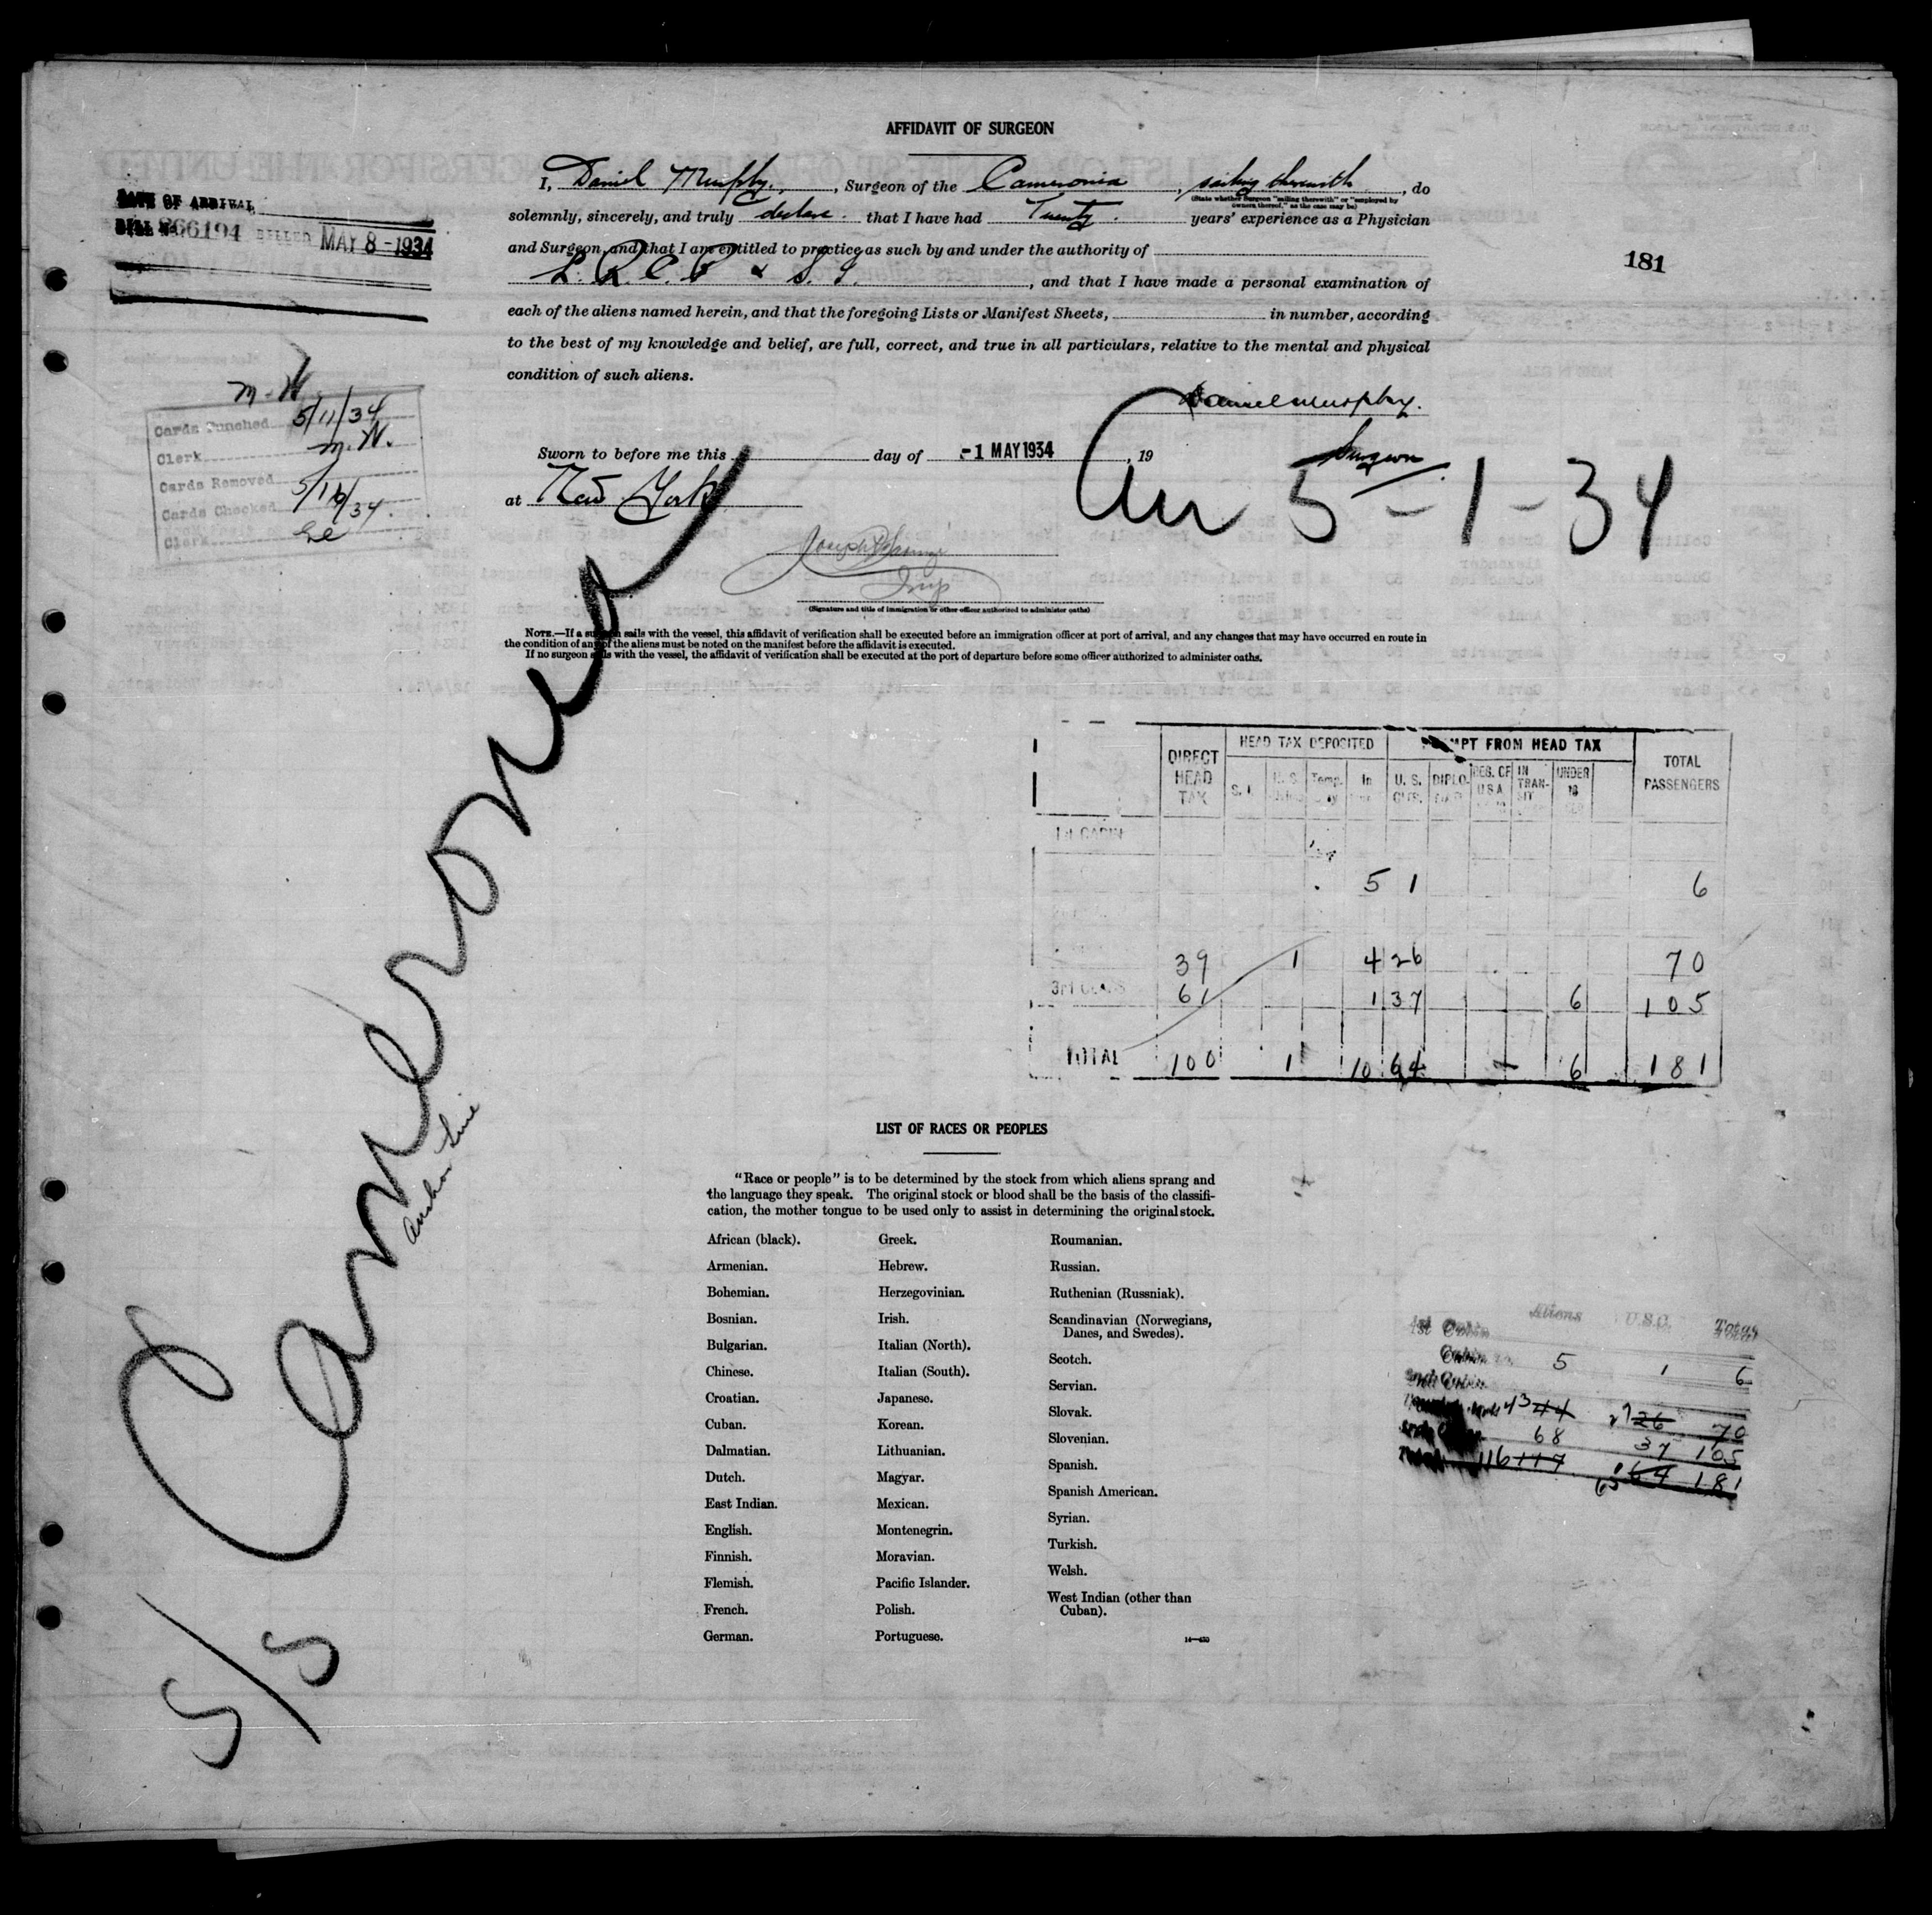 AFFIDAVIT OF SURGEON
I, Daniel Murphy, Surgeon of the Cameronia, sailing therewith, do
(State whether Surgeon "sailing therewith" or "employed by
owners thereof," as the case may be)
solemnly, sincerely, and truly declare that I have had Twenty years' experience as a Physician
and Surgeon, and that I am entitled to practice as such by and under the authority of
L. R. C. P & S. I., and that I have made a personal examination of
each of the aliens named herein, and that the foregoing Lists or Manifest Sheets, in number, according
to the best of my knowledge and belief, are full, correct, and true in all particulars, relative to the mental and physical
condition of such aliens.
Daniel Murphy.
Surgeon
Sworn to before me this day of -1 MAY 1934, 19
at New York
Arr 5-1-34
Insp
(Signature and title of immigration or other officer authorized to administer oaths)
NOTE.—If a surgeon sails with the vessel, this affidavit of verification shall be executed before an immigration officer at port of arrival, and any changes that may have occurred en route in
the condition of any of the aliens must be noted on the manifest before the affidavit is executed.
If no surgeon sails with the vessel, the affidavit of verification shall be executed at the port of departure before some officer authorized to administer oaths.
DATE OF ARRIVAL
BILL No. 866194 BILLED MAY 8-1934
181
M.W.
Cards Punched 5/11/34
Clerk M.W.
Cards Removed
Cards Checked 5/16/34.
Clerk
S/S Cameronia
Anchor Line
DIRECT HEAD TAX
HEAD TAX DEPOSITED
EXEMPT FROM HEAD TAX
TOTAL PASSENGERS
S. I. U. S. Temp. In U. S. DIPLO- RES. OF U.S.A IN TRAN-SIT UNDER 16
1st CABIN
5 1 6
39 1 4 26 70
3rd CLASS 61 1 37 6 105
TOTAL 100 1 10 64 6 181
LIST OF RACES OR PEOPLES
"Race or people" is to be determined by the stock from which aliens sprang and
the language they speak. The original stock or blood shall be the basis of the classifi-
cation, the mother tongue to be used only to assist in determining the original stock.
African (black).
Armenian.
Bohemian.
Bosnian.
Bulgarian.
Chinese.
Croatian.
Cuban.
Dalmatian.
Dutch.
East Indian.
English.
Finnish.
Flemish.
French.
German.
Greek.
Hebrew.
Herzegovinian.
Irish.
Italian (North).
Italian (South).
Japanese.
Korean.
Lithuanian.
Magyar.
Mexican.
Montenegrin.
Moravian.
Pacific Islander.
Polish.
Portuguese.
Roumanian.
Russian.
Ruthenian (Russniak).
Scandinavian (Norwegians,
Danes, and Swedes).
Scotch.
Servian.
Slovak.
Slovenian.
Spanish.
Spanish American.
Syrian.
Turkish.
Welsh.
West Indian (other than
Cuban).
14—430
Aliens U.S.C. Total
1st Cabin
Cabin 5 1 6
43 44 27 26 70
68 37 105
Total 116 117 65 64 181